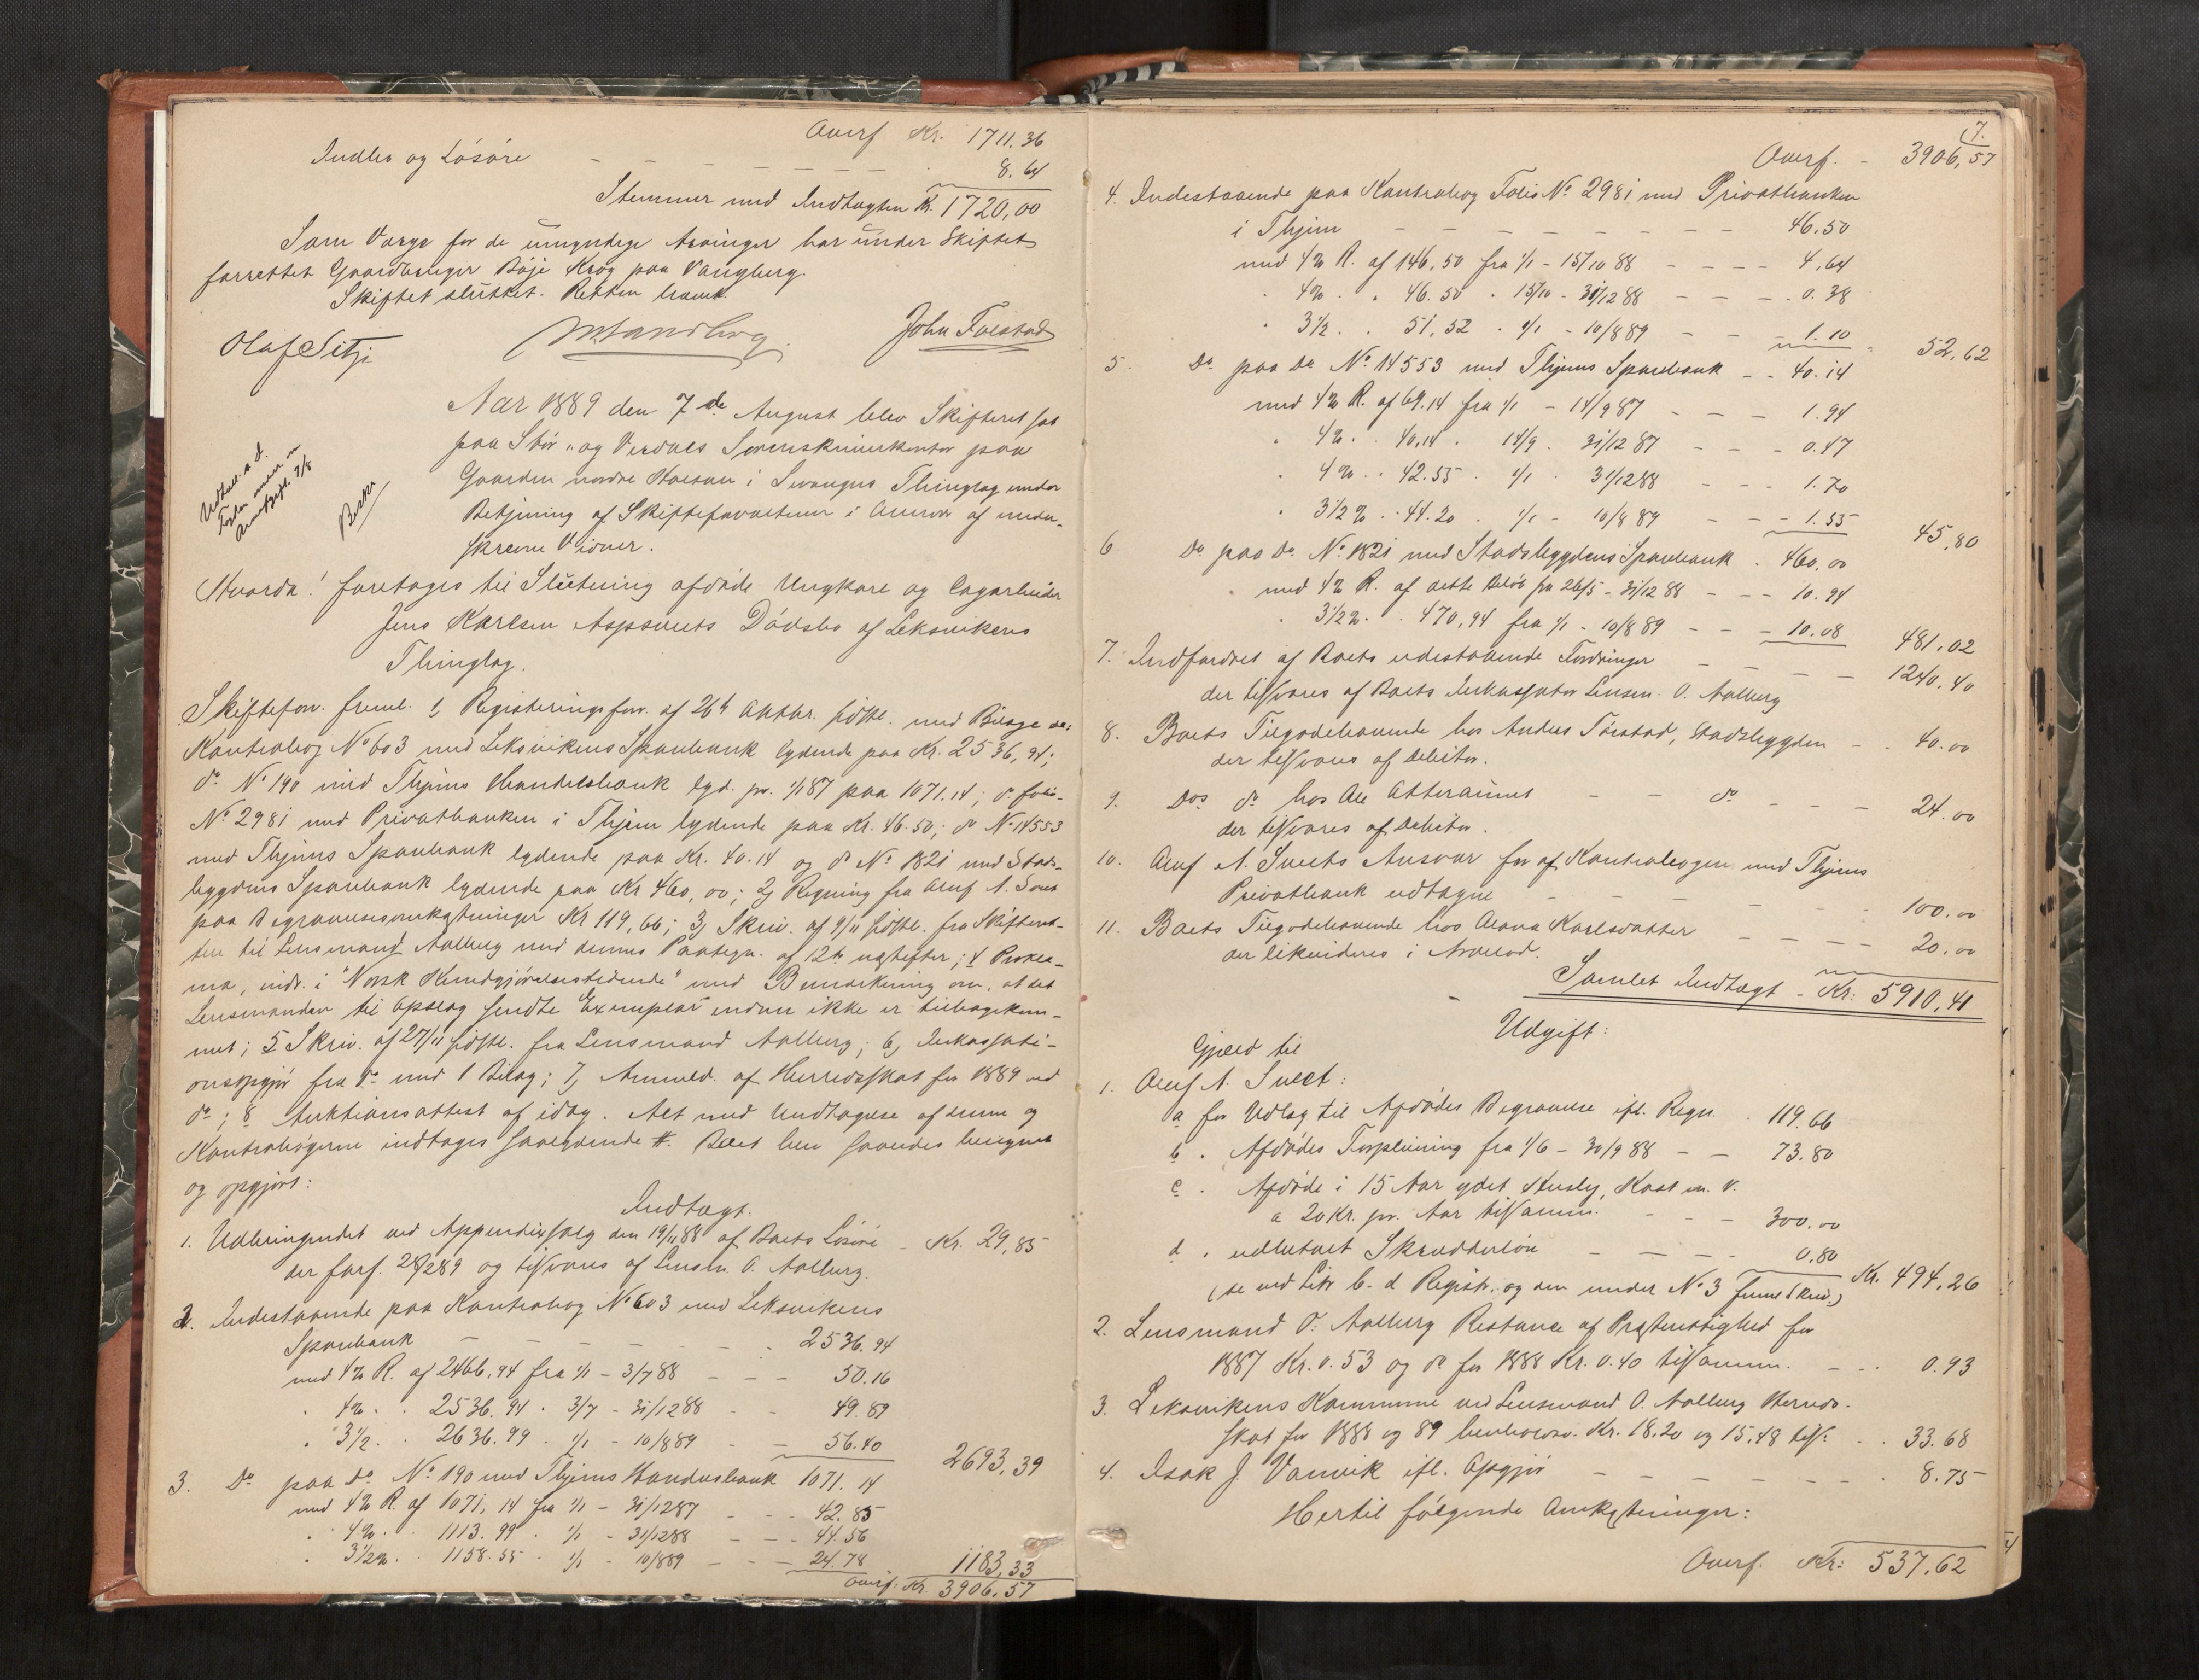 Overf Kr. 1711.36
Indbo og Løsøre - - - - - - 8.64
Stemmer med Indtægten Kr. 1720,00
Som Værge for de umyndige Arvinger har under Skiftet
forrettet Gaardbruger Böje Krog paa Vangberg.
Skiftet sluttet. Retten hævet
Olaf Sitje
John Tolstad
Udskr. a. d.
Aar 1889 den 7de August blev Skifteret sat
paa Stör- og Verdals Sorenskriverkontor paa
Gaarden nordre Holsan i Levangns Thinglag under
Betjening af Skifteforvalteren i Overvær af under-
skrevne Vidner.
Hvorda! foretages til Slutning afdöde Ungkarl og Lægarbeider
Jens Karlsen Aspsvets Dödsbo af Leksvikens
Thinglag.
Skifteforv. freml. 1, Registreringsforr. af 26de Oktbr. sidstl. med Bilage
Kontrabog No 603 med Leksvikens Sparebank lydende paa Kr. 2536,94;
do No 190 med Thjems Handelsbank lyd. pr. 1/1 87 paa 1071.14; do folio
No 2981 med Privatbanken i Thjem lydende paa Kr. 46.50; do No 14553
med Thjems Sparebank lydende paa Kr. 40.14 og do No 1821 med Stads-
bygdens Sparebank lydende paa Kr 460,00; 2, Regning fra Oluf A. Svet
paa Begravelsesomkostninger Kr 119,66; 3, Skriv. af 9/11 sidstl. fra Skifteret-
ten til Lensmand Aalberg med dennes Paategn. af 12te næstefter; 4 Prokla-
ma, indr. i "Norsk Kundgjørelsestidende" med Bemærkning om, at det
Lensmanden til Opslag sendte Exemplar endnu ikke er tilbagekom-
met; 5 Skriv. af 27/11 sidstl. fra Lensmand Aalberg; 6, Inkassati-
onsopgjör fra do med 1 Bilag; 7, Anmeld. af Herredsskat for 1889 ved
do; 8 Auktionsattest af idag. Alt med Undtagelse af denne og
Kontrabögerne indtages saalydende #. Boet blev saaledes beregnet
og opgjort:
Indtægt.
1. Udbringendet ved Appendixsalg den 19/11 88 af Boets Løsøre - Kr. 29,85
der forf. 28/2 89 og tilsvares af Lensm. O. Aalberg.
2. Indestaaende paa Kontrabog No 603 med Leksvikens
Sparebank - - - - - - 2536.94
med 4% R. af 2466.94 fra 1/1 - 3/7 88 - - - 50.16
" 4% . . 2536.94 . 3/7 - 31/12 88 - - 49.89
" 3 1/2 . . 2636.99 . 1/1 - 10/8 89 - - 56.40 2693,39
3. Do paa do No 190 med Thjems Handelsbank 1071.14
med 4% R. af 1071,14 fra 1/1 - 31/12 87 - - - 42.85
" 4% . . 1113.99 . 1/1 - 31/12 88 - - - 44.56
" 3 1/2% . . 1158.55 . 1/1 - 10/8 89 - - - 24.78 1183,33
Overf. Kr. 3906.57
7.
Overf. - 3906,57
4. Indestaaende paa Kontrabog Folio No 2981 med Privatbanken
i Thjem - - - - - - - - 46.50
med 4% R. af 146,50 fra 1/1 - 15/10 88 - - - - 4,64
" 4% . . 46.50 . 15/10 - 31/12 88 - - - 0.38
" 3 1/2 . . 51,52 . 1/1 - 10/8 89 - - - 1.10 52,62
5. Do paa do No 14553 med Thjems Sparebank - - 40.14
med 4% R. af 69.14 fra 1/1 - 14/9 87 - - - 1.94
" 4% . . 40,14 . 14/9 . 31/12 87 - - - 0.47
" 4% . . 42.55 . 1/1 . 31/12 88 - - - 1.70
" 3 1/2% . . 44.20 . 1/1 - 10/8 89 - - - 1.55 45,80
6 Do paa do No 1821 med Stadsbygdens Sparebank . 460.00
med 4% R. af dette Beløb fra 26/5 - 31/12 88 - - - 10.94
" 3 1/2% . . 470,94 fra 1/1 - 10/8 89 - - - 10.08 481,02
7. Indfordret af Boets udestaaende Fordringer - - - - 1240.40
der tilsvares af Boets Inkassator Lensm. O. Aalberg
8. Boets Tilgodehavende hos Anders Tørstad, Stadsbygden - - 40.00
der tilsvares af Debitor.
9. Dos do hos Ole Olteraunet - - do - - - 24.00
der tilsvares af Debitor.
10. Oluf A. Svets Ansvar for af Kontrabogen med Thjems
Privatbank udtagne - - - - - - - 100.00
11. Boets Tilgodehavende hos Olava Karlsdatter - - - - 20.00
der likvideres i Arvelod.
Samlet Indtægt - Kr: 5910,41
Udgift:
Gjæld til
1. Oluf A. Svedt:
a for Udlæg til Afdödes Begravelse ifl. Regn. . 119.66
b . Afdödes Forpleining fra 1/6 - 30/9 88 - - 73.80
c . Afdöde i 15 Aar ydet Husly, Kost m. v.
a 20 Kr. pr. Aar tilsamm. - - - 300.00
d . udbetalt Skrædderløn - - - - 0.80 Kr. 494,26
(se ved Litr b-d Registr. og den under No 3 freml Skriv.)
2. Lensmand O. Aalberg Restance af Præsterettighed for
1887 Kr. 0.53 og do for 1888 Kr. 0.40 tilsamm. - - . 0.93
3. Leksvikens Kommune ved Lensmand O. Aalberg Herreds-
skat for 1888 og 89 henholdsv. Kr. 18.20 og 15.48 tils. . . 33.68
4. Isak J. Vanvik ifl. Opgjör - - - - - - - 8.75
Hertil følgende Omkostninger:
Overf. Kr: 537,62